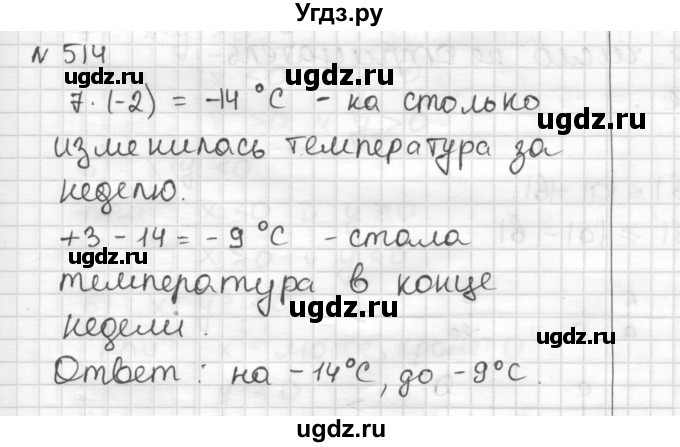 Угдз.ру
N 514
7·(-2) = -14 °C - на столько
изменилась температура за
неделю.
+3 - 14 = - 9 °C - стала
температура в конце
недели.
Ответ: на -14°C, до -9°C.
ugdz.ru
ugdz.ru
ugdz.ru
ugdz.ru
ugdz.ru
ugdz.ru
ugdz.ru
ugdz.ru
ugdz.ru
ugdz.ru
ugdz.ru